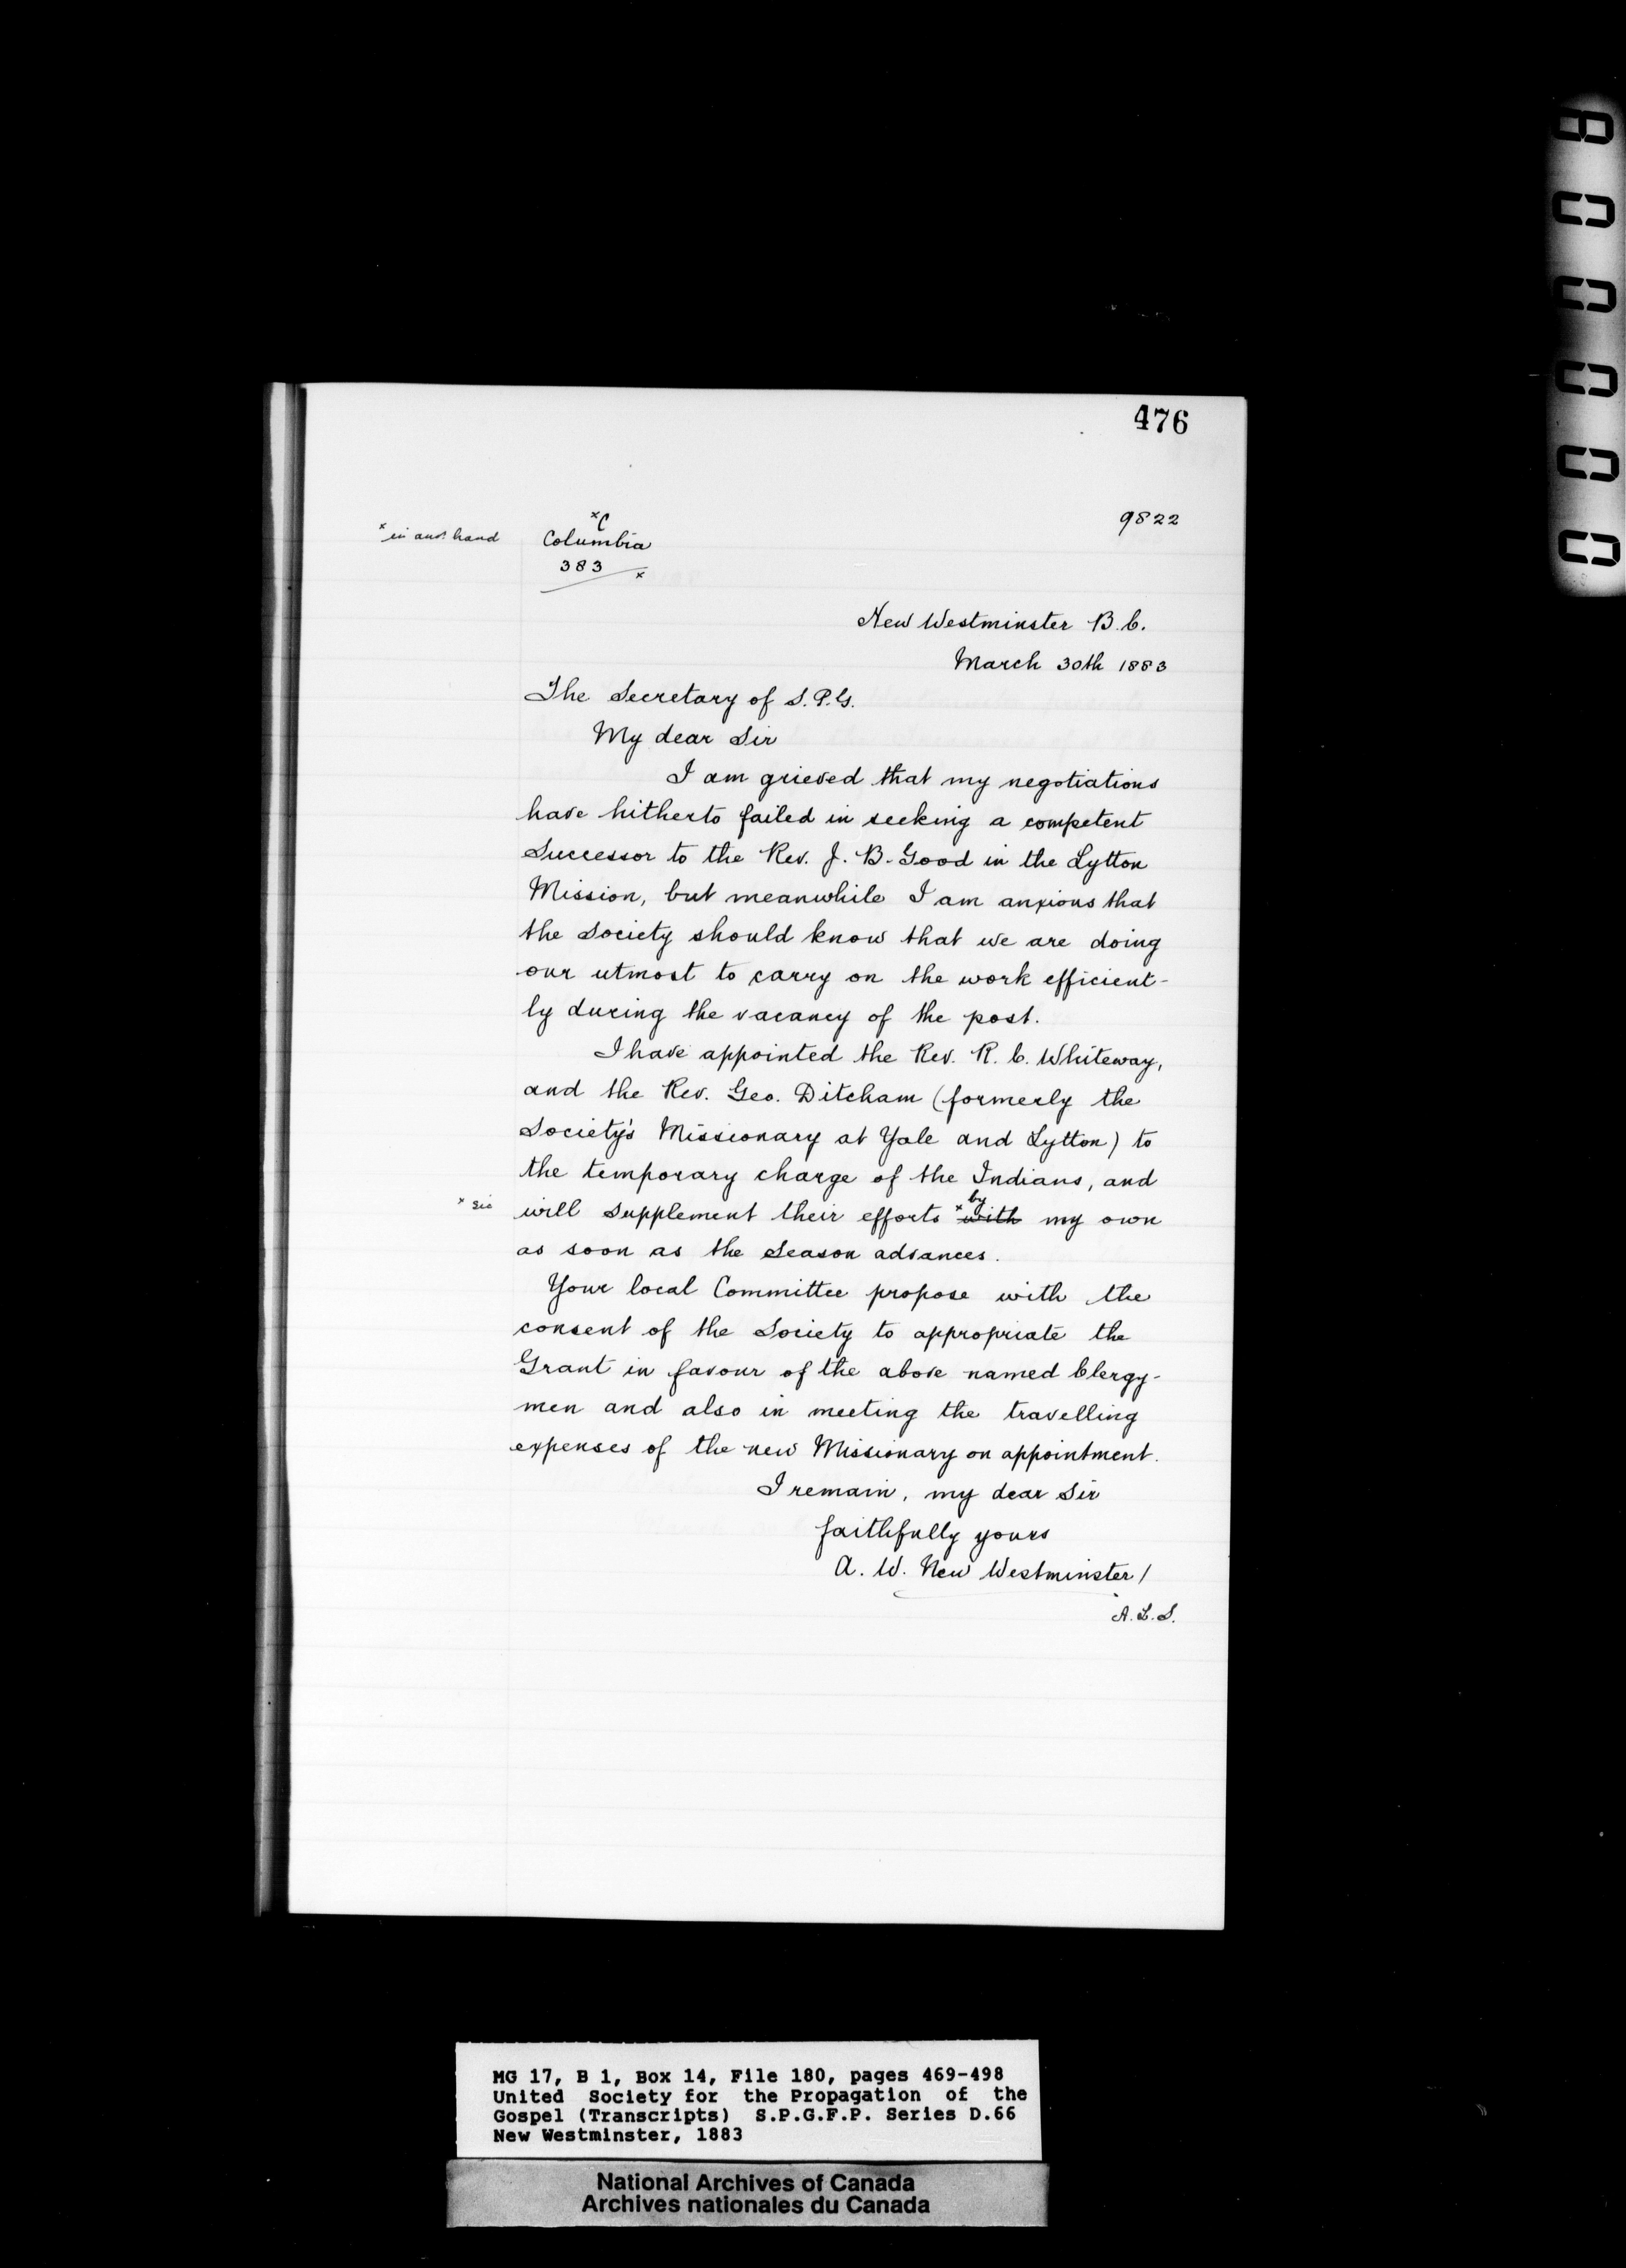 476
9822
x in anr. hand
xC
Columbia
383 x
New Westminster B.C.
March 30th 1883
The Secretary of S.P.G.
My dear Sir
I am grieved that my negotiations
have hitherto failed in seeking a competent
Successor to the Rev. J. B. Good in the Lytton
Mission, but meanwhile I am anxious that
the Society should know that we are doing
our utmost to carry on the work efficient-
ly during the vacancy of the post.
I have appointed the Rev. R. C. Whiteway,
and the Rev. Geo. Ditcham (formerly the
Society's Missionary at Yale and Lytton) to
the temporary charge of the Indians, and
x sic
will supplement their efforts x with by my own
as soon as the Season advances.
Your local Committee propose with the
consent of the Society to appropriate the
Grant in favour of the above named Clergy-
men and also in meeting the travelling
expenses of the new Missionary on appointment.
I remain, my dear Sir
faithfully yours
A. W. New Westminster/
A.L.S.
MG 17, B 1, Box 14, File 180, pages 469-498
United Society for the Propagation of the
Gospel (Transcripts) S.P.G.F.P. Series D.66
New Westminster, 1883
National Archives of Canada
Archives nationales du Canada